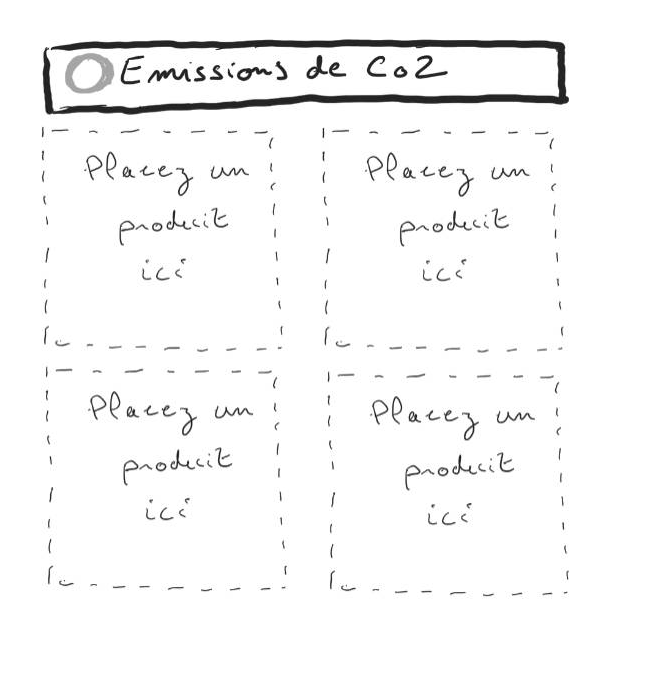 Emissions de Co2
Placez un
produit
ici
Placez un
produit
ici
Placez un
produit
ici
Placez un
produit
ici